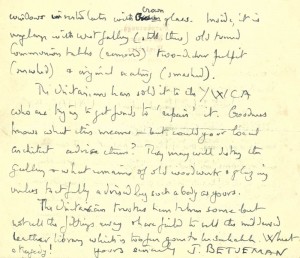 crown
windows inviolate with glass. Inside, it is
with west gallery (still there) old round
Communion table (removed) two-decker pulpit
(smashed) & original seating (smashed).
The Unitarians have sold it to the YWCA
who are trying to get funds to 'repair' it. Goodness
knows what this means — but could your local
architect advise them? They may well destroy the
gallery & what remains of old woodwork & glazing
unless tactfully advised by such a body as yours.
The Unitarian trustees have taken some
the fittings away & have failed to sell the
leather library which is too far gone to be saleable. What
a tragedy! Yours sincerely J. BETJEMAN